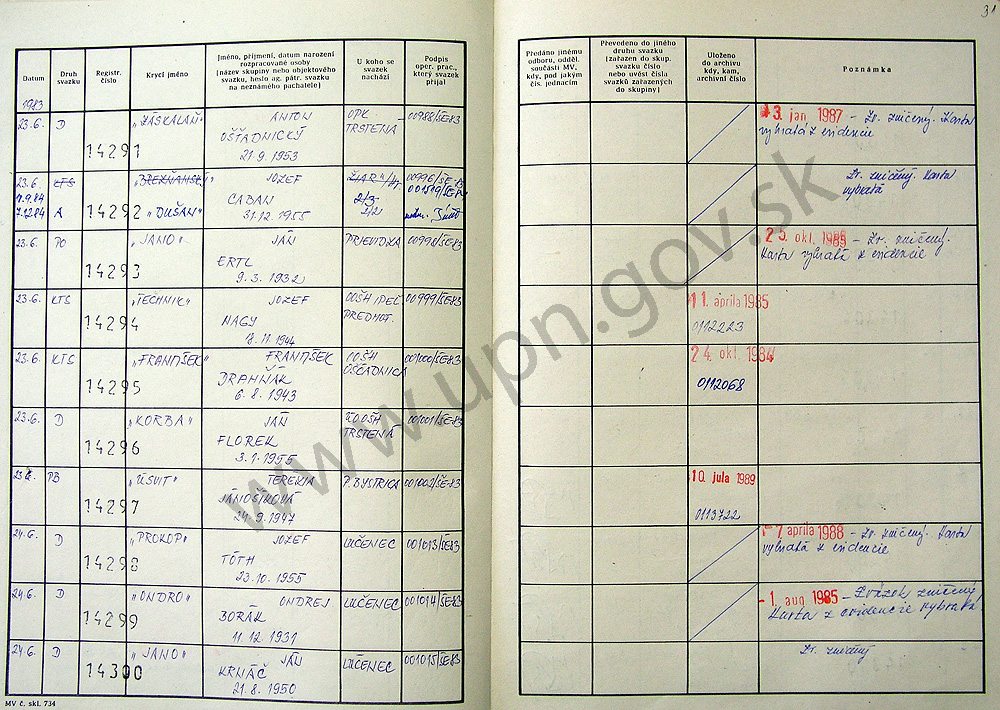 31
Datum
Druh svazku
Registr. číslo
Krycí jméno
Jméno, příjmení, datum narození
rozpracované osoby
(název skupiny nebo objektového
svazku, heslo ag. pátr. svazku
na neznámého pachatele)
U koho se
svazek
nachází
Podpis
oper. prac.,
který svazek
přijal
Předáno jinému
odboru, odděl.
součásti MV,
kdy, pod jakým
čís. jednacím
Převedeno do jiného
druhu svazku
(zařazen do skup.
svazku číslo
nebo uvést čísla
svazků zařazených
do skupiny)
Uloženo
do archivu
kdy, kam,
archivní číslo
Poznámka
1983
23.6. D 14291 "ZÁSKALAŇ" ANTON
OŠŤADNICKÝ
21.9.1953
OPK TRSTENÁ 00988/ŠE-83
3. jan 1987 - Zv. zničený. Karta
vybratá z evidencie
23.6. KTS 14292 "BREZŇANSKÝ" JOZEF
CABAN
31.12.1955
00996/ŠE-83
001519/ŠE-83
A "DUŠAN"
Zv. zničený. Karta
vybratá
23.6. PO 14293 "JANO" JÁN
ERTL
9.3.1932
PRIEVIDZA 00998/ŠE-83
25. okt 1989 - Zv. zničený.
Karta vybratá z evidencie
23.6. KTS 14294 "TECHNIK" JOZEF
NAGY
OOŠH IPEĽ. PREDMOT. 00999/ŠE-83
11. apríla 1985
0112223
23.6. KTS 14295 "FRANTIŠEK" FRANTIŠEK
DRAHŇÁK
6.8.1943
OOŠH OŠČADNICA 001000/ŠE-83
24. okt. 1984
0112068
23.6. D 14296 "KORBA" JÁN
FLOREK
3.1.1955
OOŠH TRSTENÁ 001001/ŠE-83
PB 14297 "ÚSVIT" TERÉZIA
JÁNOŠÍKOVÁ
24.9.1947
P. BYSTRICA 001002/ŠE-83
10. júla 1989
0113722
24.6. D 14298 "PROKOP" JOZEF
TÓTH
23.10.1955
LUČENEC 001013/ŠE-83
7. apríla 1988 - Zv. zničený. Karta
vybratá z evidencie
24.6. D 14299 "ONDRO" ONDREJ
BORÁK
11.12.1931
LUČENEC 001014/ŠE-83
1. aug 1985 - Zväzok zničený
Karta z evidencie vybratá
24.6. D 14300 "JANO" JÁN
KRNÁČ
21.8.1950
LUČENEC 001015/ŠE-83
Zv. zničený
MV č. skl. 734
www.upn.gov.sk